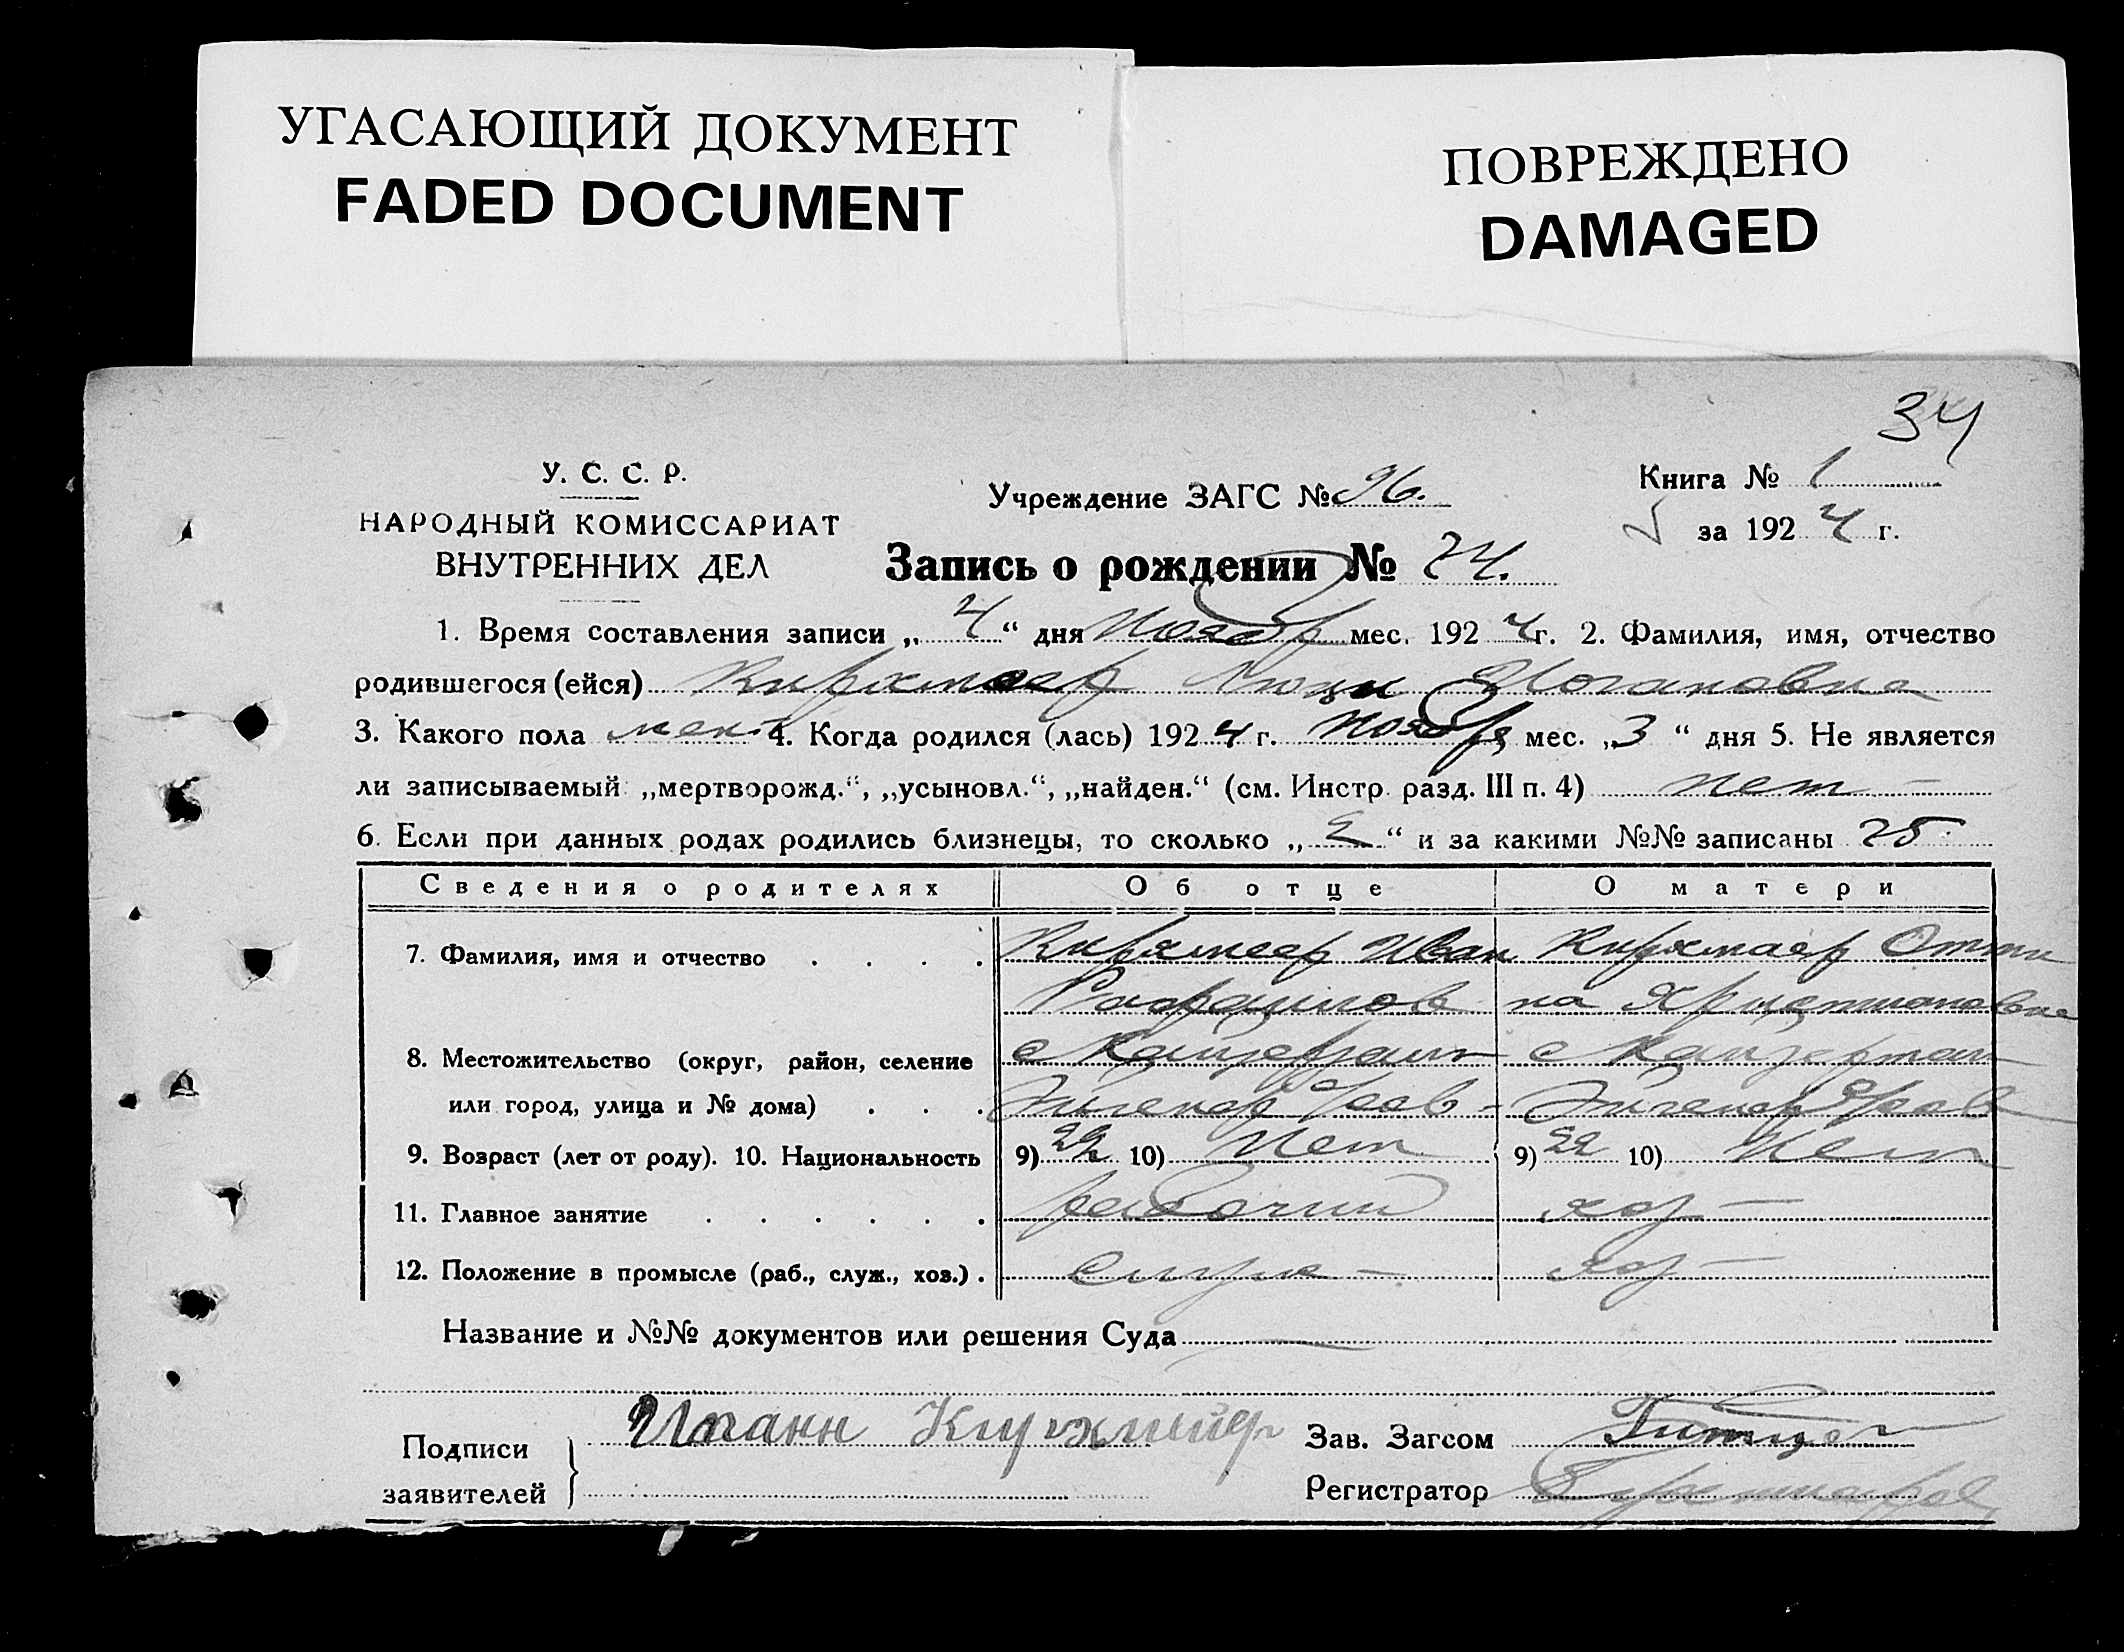 УГАСАЮЩИЙ ДОКУМЕНТ
FADED DOCUMENT
ПОВРЕЖДЕНО
DAMAGED
34
У. С. С. Р.
НАРОДНЫЙ КОМИССАРИАТ
ВНУТРЕННИХ ДЕЛ
Учреждение ЗАГС № 96.
Книга № 1
за 1924 г.
Запись о рождении № 24.
1. Время составления записи „ 4 “ дня Ноября мес. 1924 г. 2. Фамилия, имя, отчество
родившегося (ейся) Кирхмаер Иогановна
3. Какого пола жен. 4. Когда родился (лась) 1924 г. Ноября мес. „ 3 “ дня 5. Не является
ли записываемый „мертворожд.“, „усыновл.“, „найден.“ (см. Инстр. разд. III п. 4) нет —
6. Если при данных родах родились близнецы, то сколько „ 2 “ и за какими №№ записаны 25
Сведения о родителях Об отце О матери
7. Фамилия, имя и отчество Кирхмеер Иван Кирхмаер Отти
на Христиановна
8. Местожительство (округ, район, селение с с
или город, улица и № дома)
9. Возраст (лет от роду). 10. Национальность 9) 22 10) Нем 9) 22 10) Нем
11. Главное занятие рабочий хоз —
12. Положение в промысле (раб., служ., хоз.) служ — хоз —
Название и №№ документов или решения Суда
Подписи заявителей Иоганн Кирхмейер
Зав. Загсом
Регистратор